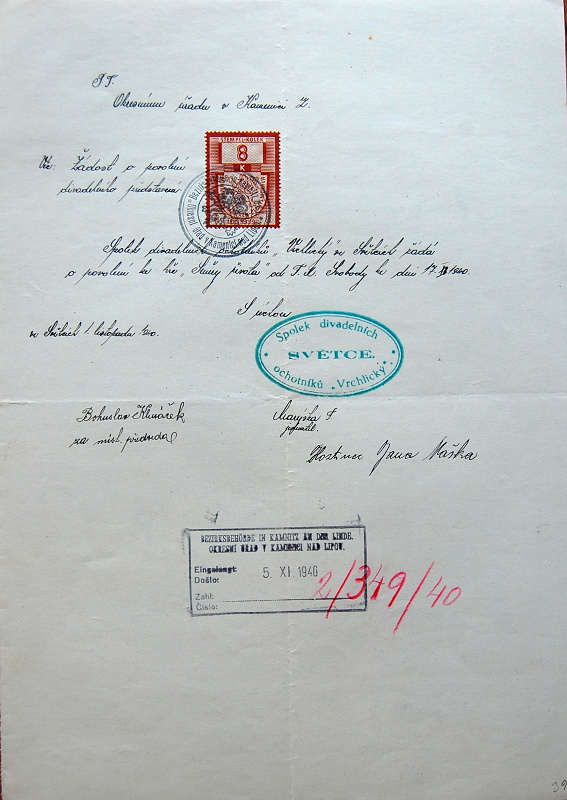 PT.
Okresnímu úřadu v Kamenici L.
STEMPEL-KOLEK
8
K
Věc: Žádost o povolení
divadelního představení
Spolek divadelních ochotníků „Vrchlický" ve Světcích žádá
o povolení ke hře od F. X. Svobody ke dni 17. XI 1940.
S úctou
ve Světcích 1. listopadu 1940.
Spolek divadelních
SVĚTCE.
ochotníků „Vrchlický".
Bohuslav
za míst. předseda
F
Hostinec Jana Maška
BEZIRKSBEHÖRDE IN KAMNITZ AN DER LINDE.
OKRESNÍ ÚŘAD V KAMENICI NAD LIPOU.
Eingelangt:
Došlo:
5. XI. 1940
Zahl:
Číslo:
2/349/40
39